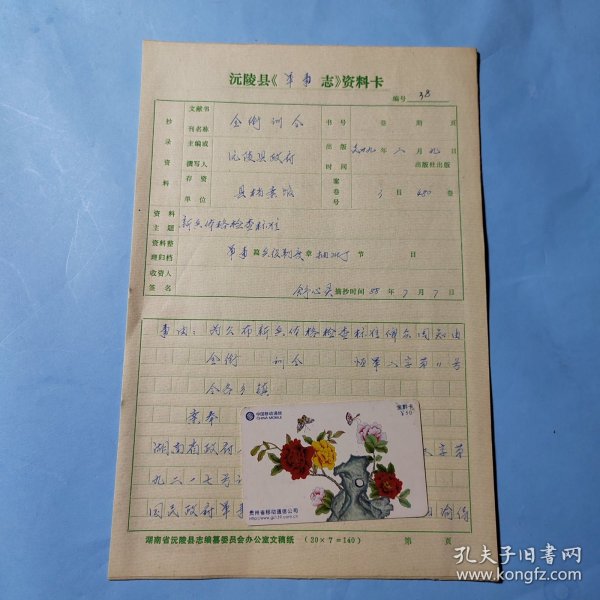 沅陵县《军事志》资料卡
编号 38
抄录资料
文献书刊名称 全衔 训令 书号 卷 期 页
主编或撰写人 沅陵县政府 出版时间 年 八 月 九 日 出版社出版
存资单位 县档案馆 案卷号 3 目 480 卷
资料主题 新兵体格检查标准
资料整理归档 军事 篇 兵役制度 章 节 目
收资人签名 摘抄时间 88 年 7 月 7 日
事由：为公布新兵体格检查标准 周知由
全衔 训令 军 字第11号
令各乡镇
案奉
湖南省政府 字第
九二一七号
国民政府军事
中国移动通信
CHINA MOBILE
金黔卡
¥50
贵州省移动通信公司
湖南省沅陵县志编纂委员会办公室文稿纸 (20×7=140) 第 页
孔夫子旧书网
www.kongfz.com